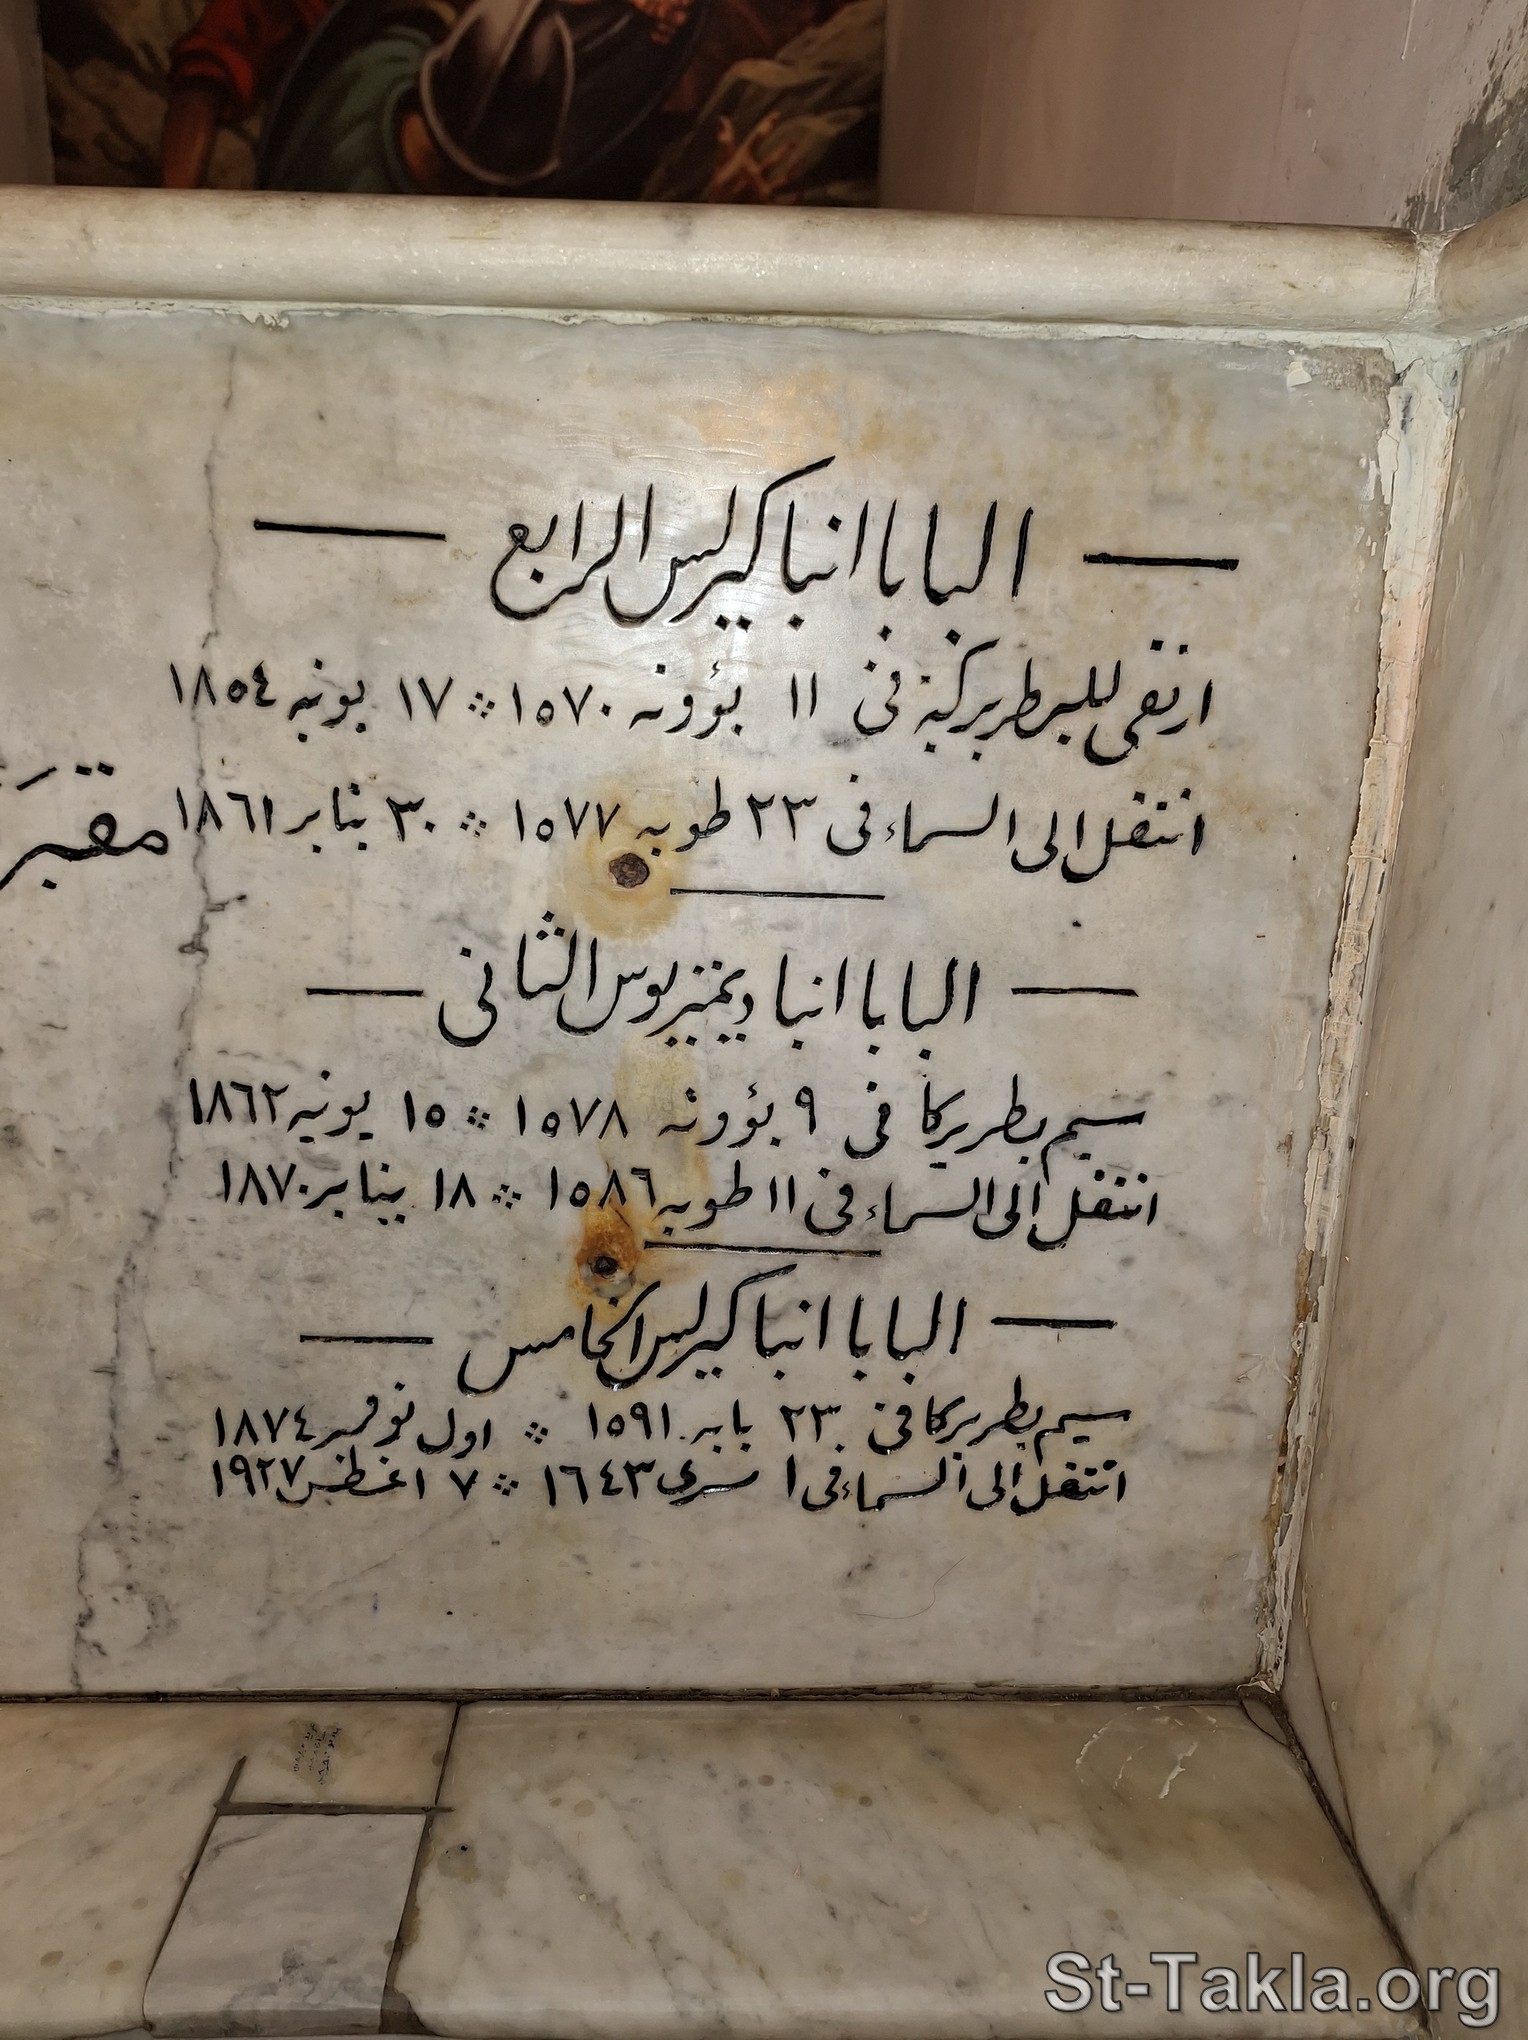 البابا انبا كيرلس الرابع
ارتقى للبطريركية فى ١١ بؤونه ١٥٧٠ ⁘ ١٧ يونيه ١٨٥٤
انتقل الى السماء فى ٢٣ طوبه ١٥٧٧ ⁘ ٣٠ يناير ١٨٦١
البابا انبا ديمتريوس الثانى
سيم بطريركا فى ٩ بؤونه ١٥٧٨ ⁘ ١٥ يونيه ١٨٦٢
انتقل الى السماء فى ١١ طوبه ١٥٨٦ ⁘ ١٨ يناير ١٨٧٠
البابا انبا كيرلس الخامس
سيم بطريركا فى ٢٣ بابه ١٥٩١ ⁘ اول نوفمبر ١٨٧٤
انتقل الى السماء فى ١ مسرى ١٦٤٣ ⁘ ٧ اغسطس ١٩٢٧
St-Takla.org